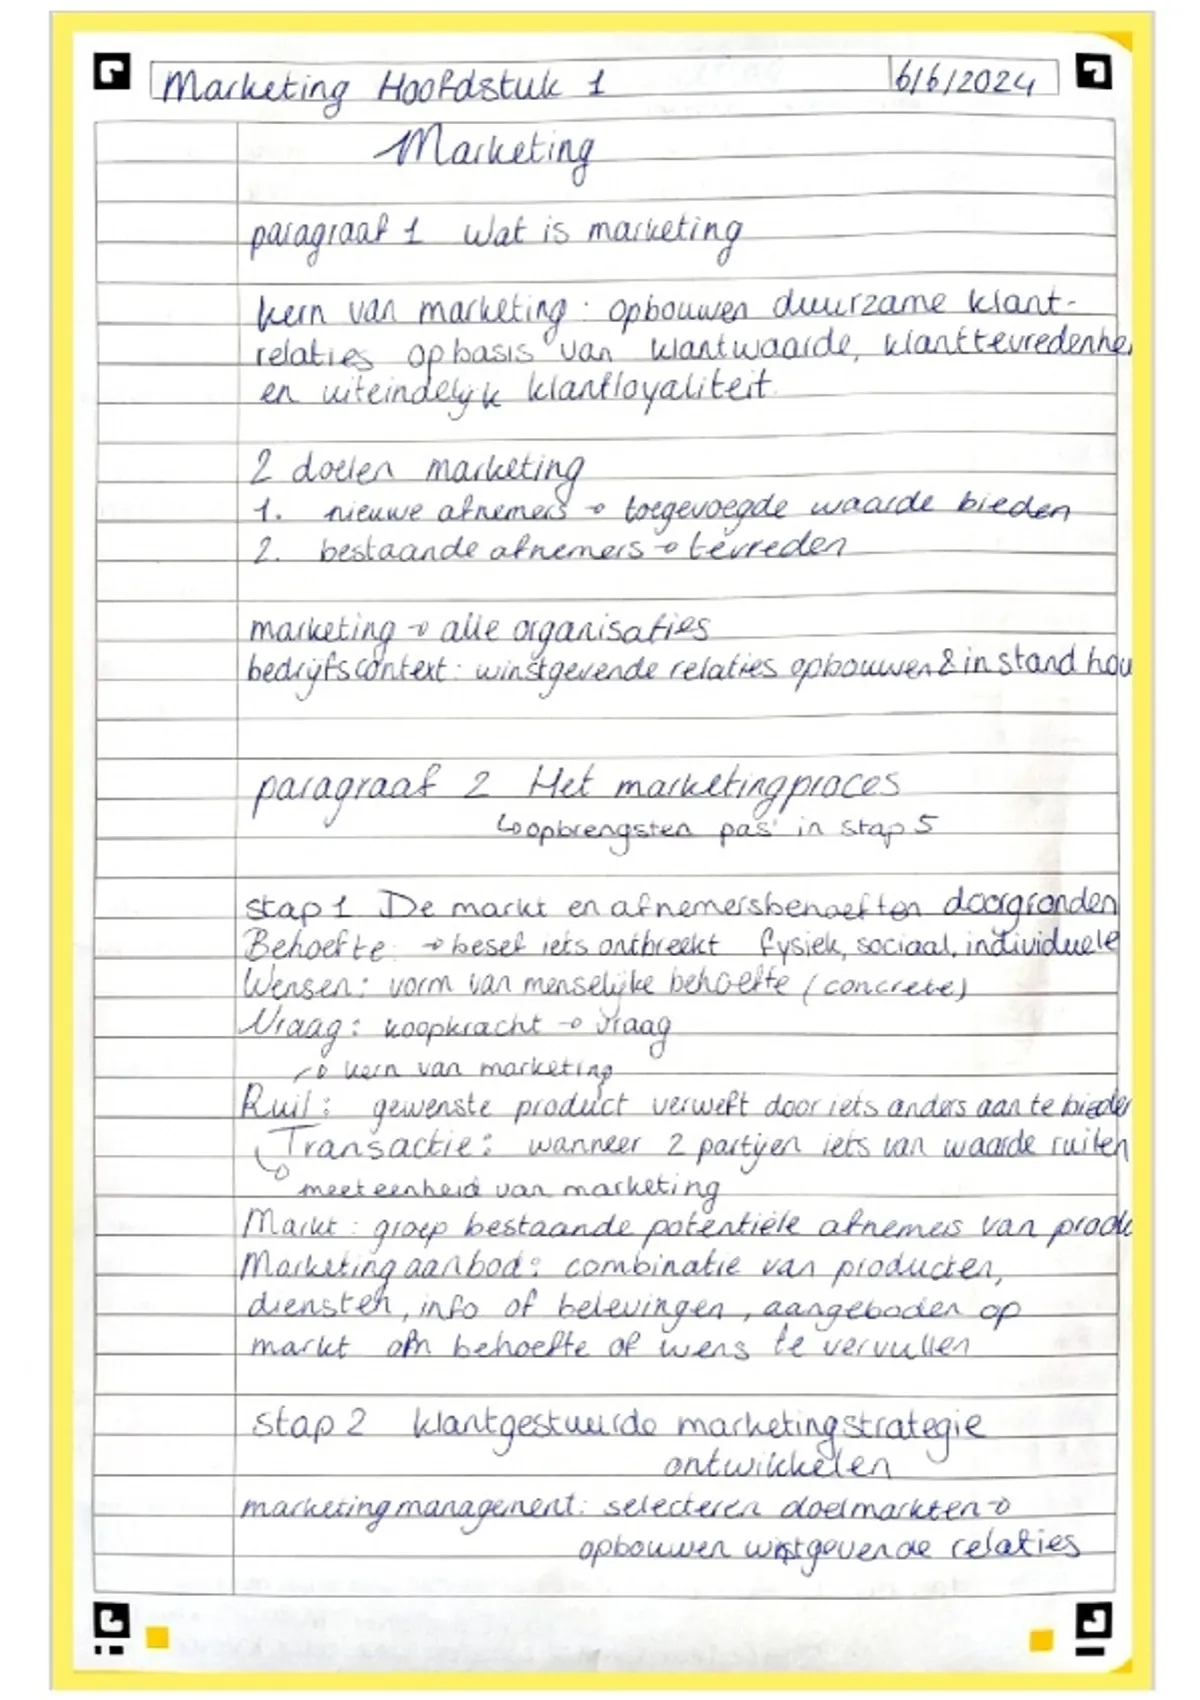 Marketing Hoofdstuk 1
6/6/2024
Marketing
paragraaf 1 Wat is marketing
kern van marketing: opbouwen duurzame klant-
relaties op basis van klantwaarde, klanttevredenhei
en uiteindelijk klantloyaliteit.
2 doelen marketing
1. nieuwe afnemers → toegevoegde waarde bieden
2. bestaande afnemers → tevreden
marketing → alle organisaties
bedrijfscontext: winstgevende relaties opbouwen & in stand hou
paragraaf 2 Het marketingproces
↳ opbrengsten pas in stap 5
stap 1 De markt en afnemersbehoeften doorgronden
Behoefte: → besef iets ontbreekt fysiek, sociaal, individuele
Wensen: vorm van menselijke behoefte (concrete)
Vraag: koopkracht → vraag
→ kern van marketing
Ruil: gewenste product verweft door iets anders aan te bieden
Transactie: wanneer 2 partijen iets van waarde ruilen
→ meeteenheid van marketing
Markt: groep bestaande potentiële afnemers van produ
Marketing aanbod: combinatie van producten,
diensten, info of belevingen, aangeboden op
markt om behoefte of wens te vervullen
stap 2 klantgestuurde marketingstrategie
ontwikkelen
marketing management: selecteren doelmarkten →
opbouwen winstgevende relaties